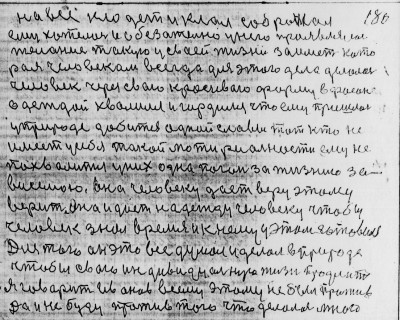 186
на вей кто дет и клал соброжал
ему хотелося обезателно у него проявляло
желание такую у всей жизни заиметь кото
рая человекам всегда для этого дела делалас
человек через свою красивую форму в фасоне
одеждой хвалился гордился что ему пришлос
у природе добится одной славы тот кто не
имеет у себя такой мотириалности ему не
похвалится у них одна погоня за жизнию за
висимою, она человеку дает веру этому
верит, она и дает надежду человеку чтобы
человек знал время и к нему у этом готовился
Для того он это все думал и делал в природе
чтобы свою индивидуалную жизнь продлить
Я говорит Иванов всему этому не был против
да и не буду против того что делалос много